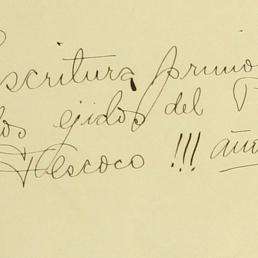 Escritura primo
los ejidos del P
Tescoco !!! año